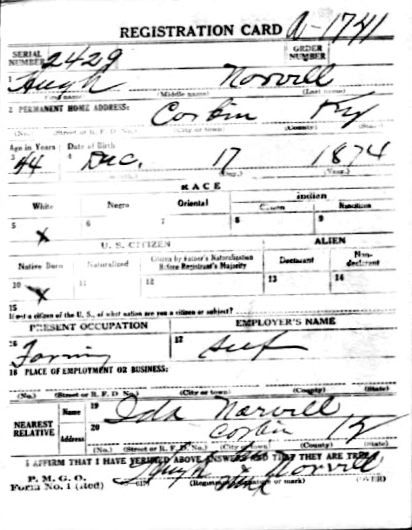 REGISTRATION CARD A-1741
SERIAL NUMBER 2429 ORDER NUMBER
1 Hugh Norvill
(First name) (Middle name) (Last name)
2 PERMANENT HOME ADDRESS: Corbin Ky
(No.) (Street or R. F. D. No.) (City or town) (County) (State)
Age in Years Date of Birth
3 44 4 Dec. 17 1874
(Month.) (Day.) (Year.)
RACE
White Negro Oriental Indian
Citizen Noncitizen
5 X 6 7 8 9
U. S. CITIZEN ALIEN
Native Born Naturalized Citizen by Father's Naturalization Before Registrant's Majority Declarant Non-declarant
10 X 11 12 13 14
15
If not a citizen of the U. S., of what nation are you a citizen or subject?
PRESENT OCCUPATION EMPLOYER'S NAME
16 Farming 17 Self
18 PLACE OF EMPLOYMENT OR BUSINESS:
(No.) (Street or R. F. D. No.) (City or town) (County) (State)
NEAREST RELATIVE Name 19 Ida Norvill
Address 20 Corbin Ky
(No.) (Street or R. F. D. No.) (City or town) (County) (State)
I AFFIRM THAT I HAVE VERIFIED ABOVE ANSWERS AND THAT THEY ARE TRUE
P. M. G. O.
Form No. 1 (Red) Hugh X Norvill
(Registrant's signature or mark) (OVER)
mark